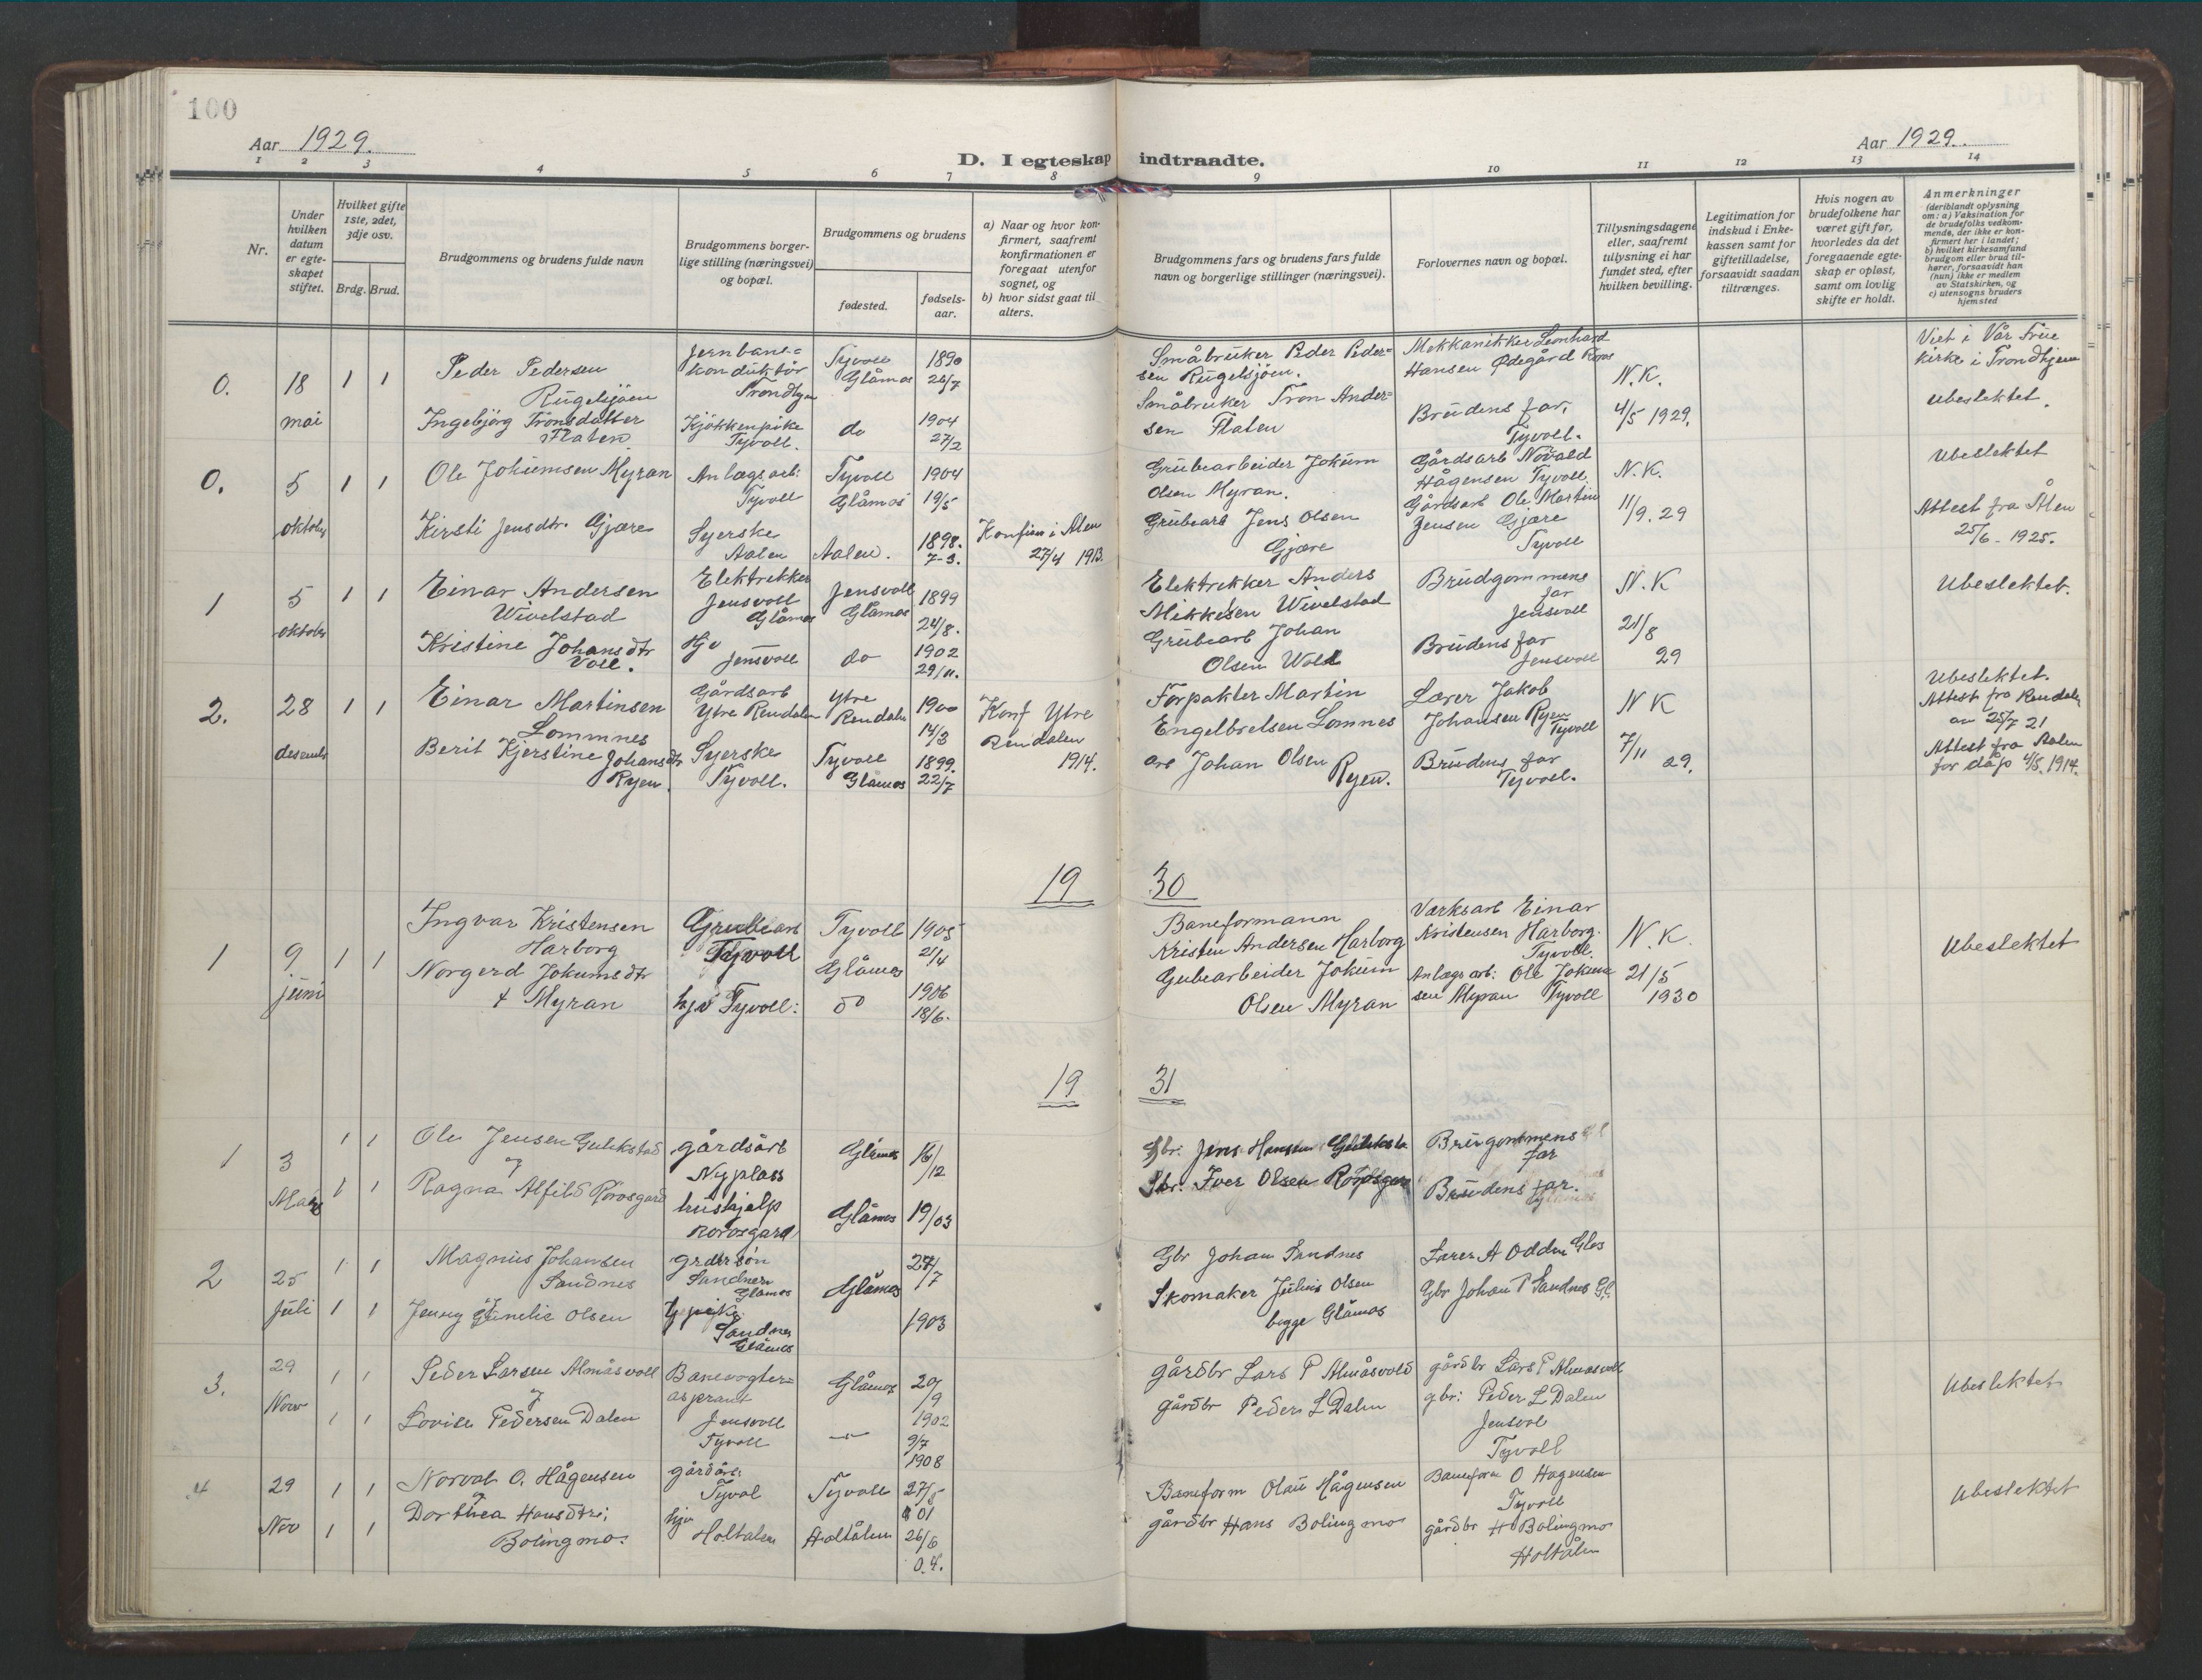 100
Aar 1929.
Aar 1929.
D. I egteskap indtraadte.
1 2 3 4 5 6 7 8 9 10 11 12 13 14
Nr.
Under hvilken datum er egte-skapet stiftet.
Hvilket gifte 1ste, 2det, 3dje osv.
Brdg. Brud.
Brudgommens og brudens fulde navn
Brudgommens borger-
lige stilling (næringsvei)
og bopæl.
Brudgommens og brudens
fødested.
fødsels-
aar.
a) Naar og hvor kon-
firmert, saafremt
konfirmationen er
foregaat utenfor
sognet, og
b) hvor sidst gaat til
alters.
Brudgommens fars og brudens fars fulde
navn og borgerlige stillinger (næringsvei).
Forlovernes navn og bopæl.
Tillysningsdagene
eller, saafremt
tillysning ei har
fundet sted, efter
hvilken bevilling.
Legitimation for
indskud i Enke-
kassen samt for
giftetilladelse,
forsaavidt saadan
tiltrænges.
Hvis nogen av
brudefolkene har
været gift før,
hvorledes da det
foregaaende egte-
skap er opløst,
samt om lovlig
skifte er holdt.
Anmerkninger
(deriblandt oplysning
om: a) Vaksination for
de brudefolks vedkom-
mende, der ikke er kon-
firmert her i landet;
b) hvilket kirkesamfund
brudgom eller brud til-
hører, forsaavidt han
(hun) ikke er medlem
av Statskirken, og
c) utensogns bruders
hjemsted
0.
18
mai
1 1
Peder Pedersen
Rugelsjøen
Ingebjörg Tronsdatter
Flaten
Jernbane-
konduktör
Trondhjem
Kjökkenpike
Tyvoll.
Tyvoll
Glåmos
do
1890
26/7
1904
27/2
Småbruker Peder Peder-
sen Rugelsjöen.
Småbruker Tron Ander-
sen Flaten
Mekkanikker Leonhard
Hansen Ødegård Röros
Brudens far,
Tyvoll.
N.K.
4/5 1929.
Viet i Vår Frue
kirke i Trondhjem
Ubeslektet.
0.
5
oktober
1 1
Ole Jokumsen Myran
Kirsti Jensdtr. Gjære
Anlægsarb:
Tyvoll
Syerske
Aalen
Tyvoll
Glåmos
Aalen.
1904
19/5
1898.
7-3.
Konfirm i Ålen
27/4 1913.
Grubearbeider Jokum
Olsen Myran.
Grubearb Jens Olsen
Gjære
Gårdsarb Norvald
Hågensen Tyvoll.
Gårdsarb Ole Martin
Jensen Gjære
Tyvoll
N.K.
11/9. 29
Ubeslektet
Attest fra Ålen
25/6 - 1925.
1
5
oktober
1 1
Einar Andersen
Wivelstad
Kristine Johansdtr
Voll.
Elektrikker
Jensvoll
Glåmos
Hjv
Jensvoll
Jensvoll
Glåmos
do
1899
24/8.
1902
29/11.
Elektrikker Anders
Mikkelsen Wivelstad
Grubearb Johan
Olsen Wold
Brudgommens
far
Jensvoll
Brudens far
Jensvoll
N.K
21/8
29
Ubeslektet.
2.
28
desemb
1 1
Einar Martinsen
Lomnes
Berit Kjerstine Johansdtr
Ryen.
Gårdsarb
Ytre Rendalen
Syerske
Tyvoll.
Ytre
Rendalen
Tyvoll
Glåmos
1900
14/3
1899.
22/7
Konf Ytre
Rendalen
1914.
Forpakter Martin
Engelbretsen Lomnes
arb Johan Olsen
Ryen.
Lærer Jakob
Johansen Ryen
Tyvoll
Brudens far
Tyvoll.
N K
7/11 29.
Ubeslektet.
Attest fra Rendalen
av 25/7 21
Attest fra Aalen
for dåp 4/8. 1914.
19 30
1
9
juni
1 1
Ingvar Kristensen
Harborg
Norgerd Jokumsdtr
Myran
Grubearb
Tyvoll
hjv Tyvoll:
Tyvoll
Glåmos
do
1905
21/4
1906
18/6.
Baneformann
Kristen Andersen Harborg
Gubearbeider Jokum
Olsen Myran
Værksarb Einar
Kristensen Harborg.
Tyvoll.
Anlægsarb: Ole Jokum
sen Myran Tyvoll
N.K.
21/5
1930
Ubeslektet
19 31
1
3
Mars
1 1
1 1
Ole Jensen Gullikstad
og
Ragna Alfild Rörosgard
gårdsarb
Nyplass
hushjelp
Rörosgard
Glåmos
Glåmos
16/12
19/03
Gbr: Jens Hansen
Gbr: Iver Olsen
Brugommens
far
Brudens far.
2
25
Juli
1 1
1 1
Magnus Johansen
Sandnes
Jenny Gunelie Olsen
Sandnes
Glåmos
Sandnes
Glåmos
Glåmos
1903
Gbr Johan Sandnes
Skomaker Julius Olsen
begge Glåmos
Lærer A Odden Glos
Gbr Johan P Sandnes Gl.
3.
29
Novr
1 1
1 1
Peder Larsen Almåsvoll
og
Lovise Pedersen Dalen
Banevogter-
aspirant
Jensvoll
Tyvoll
Glåmos
—"—
20/9
1902
9/7
1908
gårdbr Lars P Almåsvold
gårdbr Peder L Dalen
gårdbr Lars P Almåsvoll
gbr: Peder L Dalen
Jensvol
Tyvoll
Ubeslektet
4
29
Nov
1 1
1 1
Norval O. Hågensen
og
Dorthea Hansdtr:
Bolingmo.
gårdarb:
Tyvol
hjv
Holtalen
Tyvoll
Holtålen
27/5
01
26/6
04.
Baneform Olau Hågensen
gårdbr Hans Bolingmo
Baneform O Hagensen
Tyvoll
gårdbr H Bolingmo
Holtålen
Ubeslektet